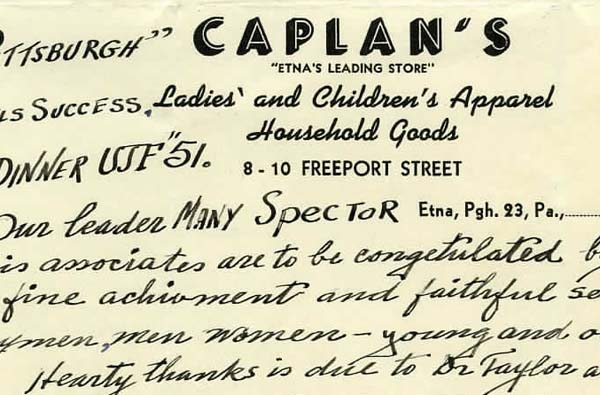 PITTSBURGH" CAPLAN'S
"ETNA'S LEADING STORE"
LS SUCCESS, Ladies' and Children's Apparel
Household Goods
DINNER UJF "51. 8 - 10 FREEPORT STREET
Our leader MANY SpectoR Etna, Pgh. 23, Pa.,
is associates are to be congetulated b
fine achivment and faithful se
ymen, men women - young and o
Hearty thanks is due to Dr Taylor a